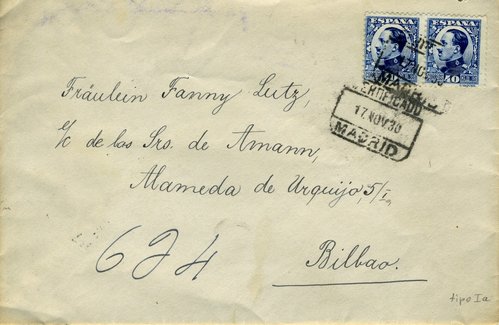 ESPAÑA ESPAÑA
40
CERTIFICADO
17.NOV.30
MADRID
Fräulein Fanny Lutz,
c/o de las Srs. de Amann,
Alameda de Urquijo, 5/I.
Bilbao.
624
tipo Ia